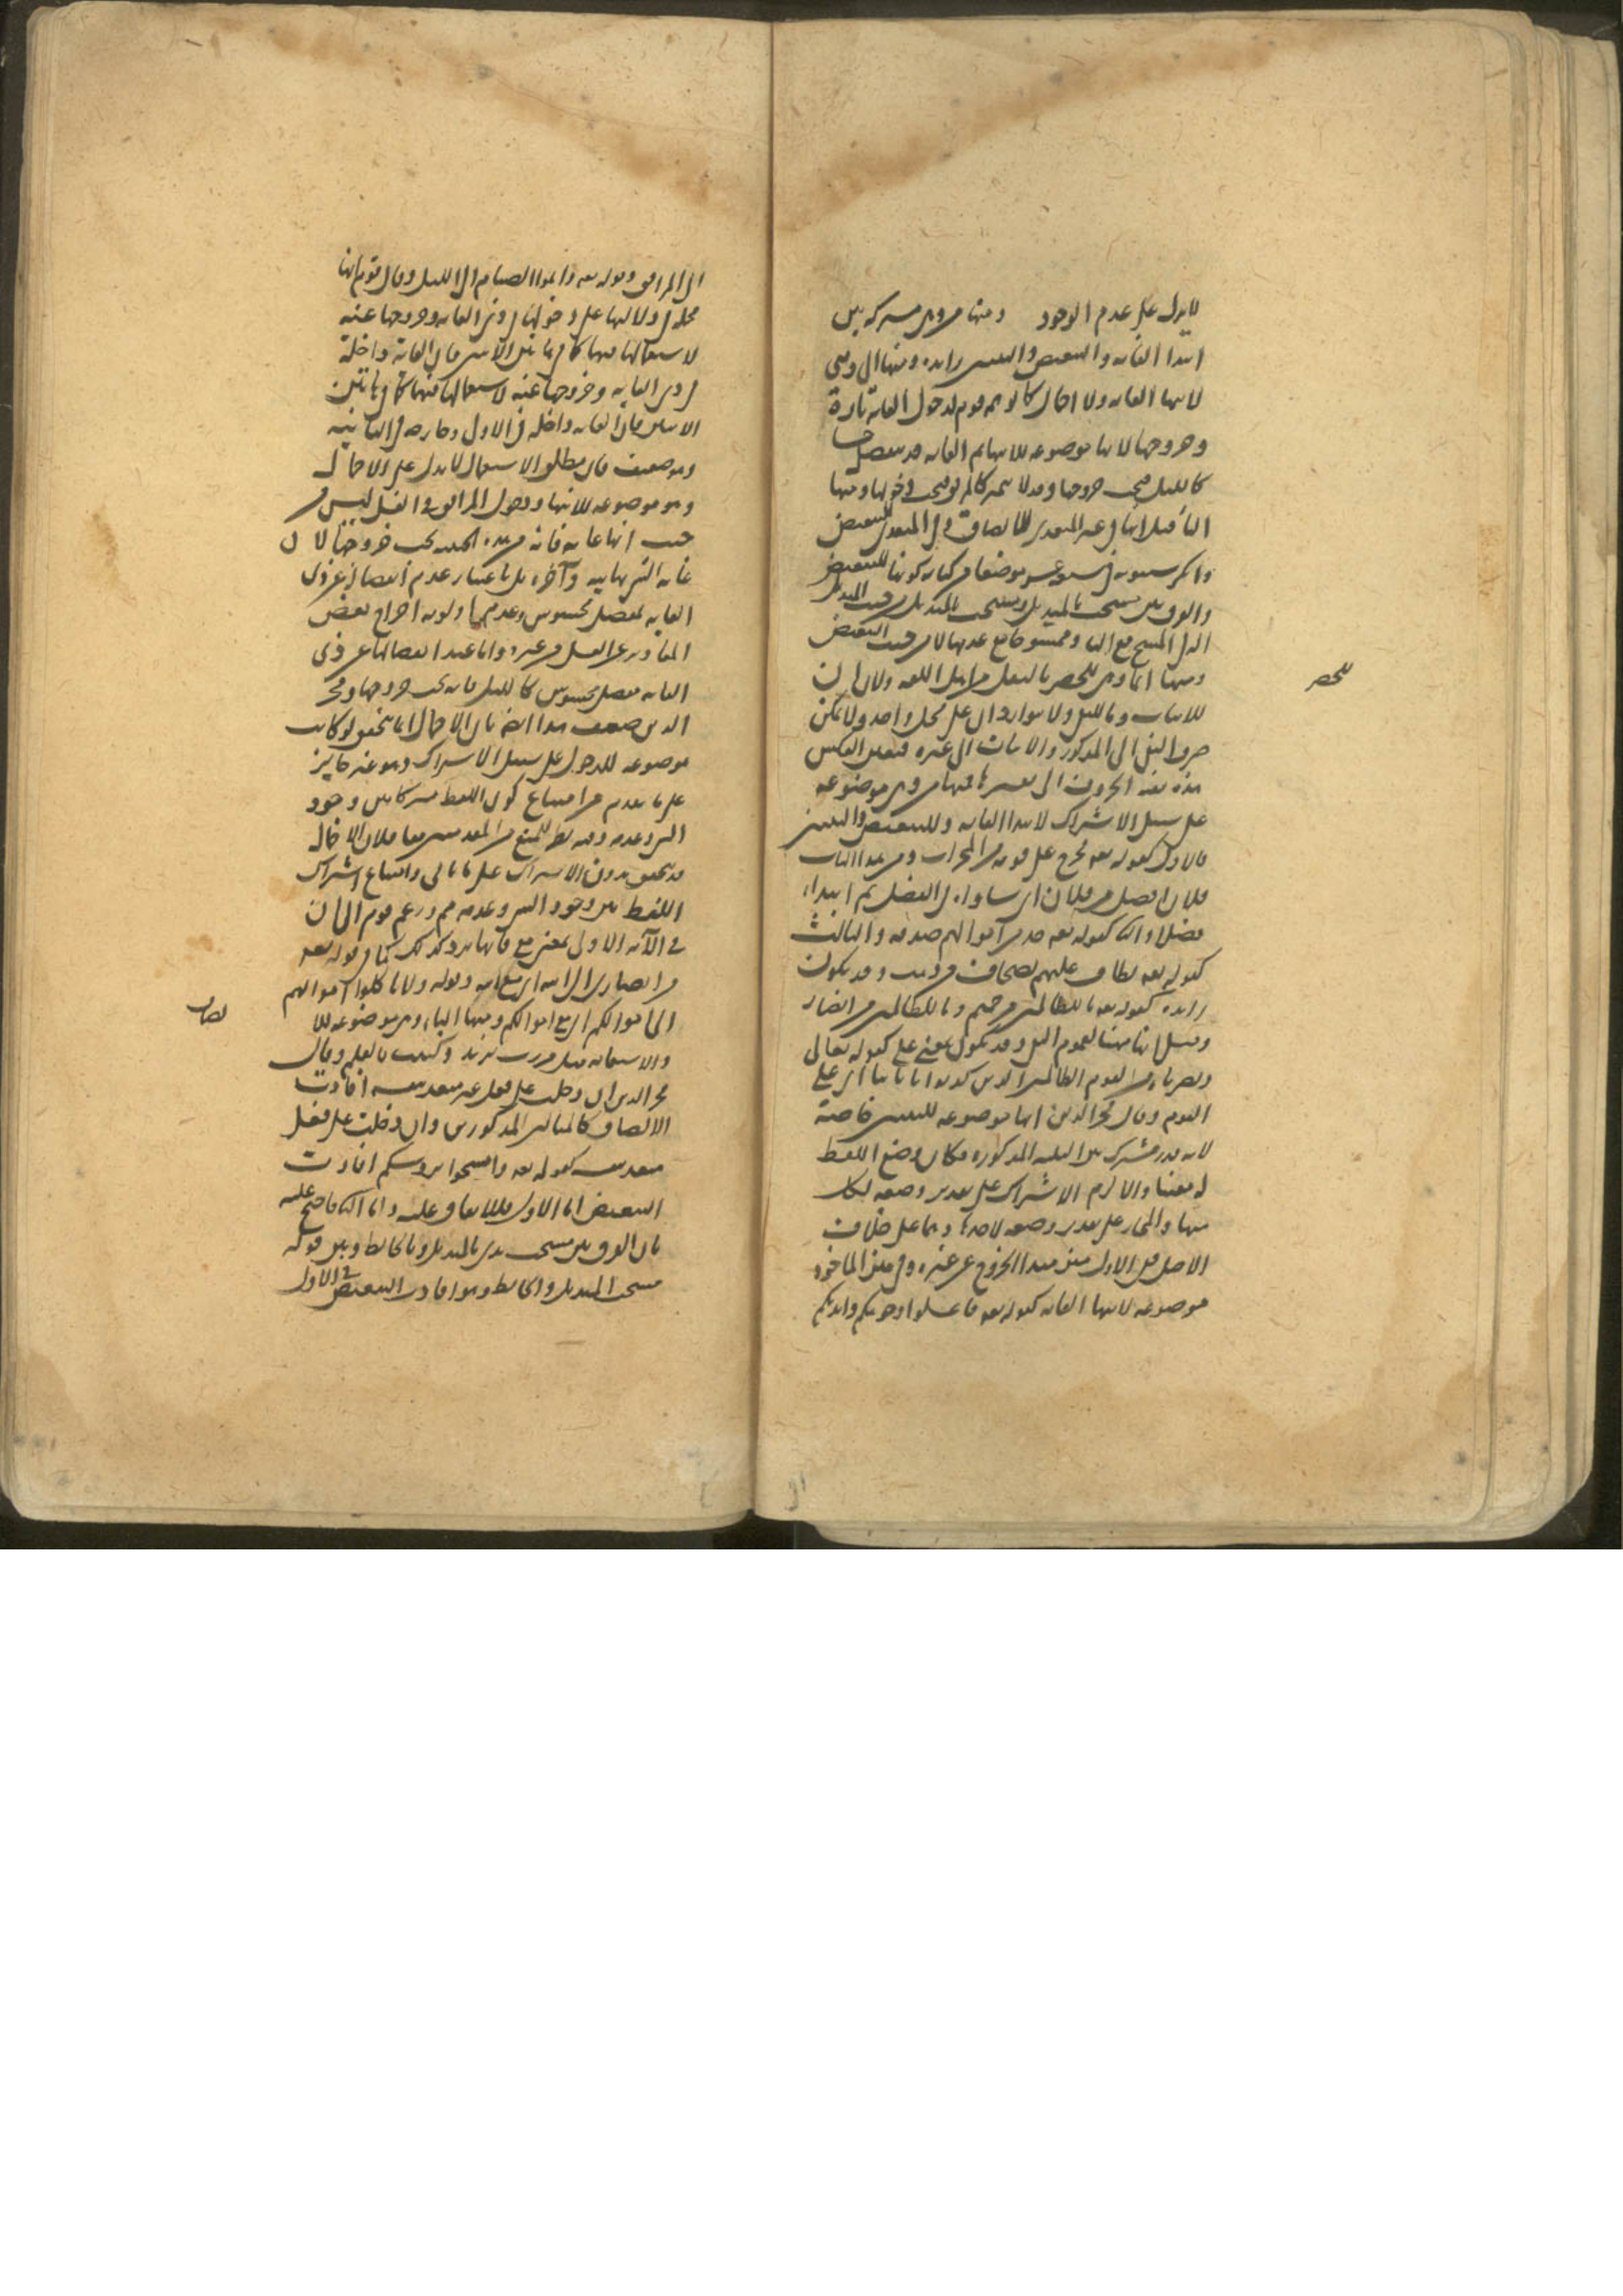 لا يدل على عدم الوجود ومنها من وهي مشتركة بين
ابتدا الغاية والتبعيض والتبيين زايدة ومنها الى وهي
لانتها الغاية ولا اجمال كما توهم قوم لدخول الغاية تارة
وخروجها لانها موضوعة للانتها ثم الغاية قد تنفصل حسا
كالليل فيجب خروجها وقد لا تتميز كالمرافق فيجب دخولها ومنها
البا قيل انها في غير المتعدي للالصاق وفي المتعدي للتبعيض
وانكر سيبويه في سبعة عشر موضعا من كتابه كونها للتبعيض
والفرق بين مسحت بالمنديل ومسحت المنديل من حيث
الة المسح مع البا وممسوحا مع عدمها لا من حيث التبعيض
ومنها انما وهي للحصر بالنقل من اهل اللغة ولان ان
للاثبات وما للنفي ولا يتواردان على محل واحد ولا يمكن
صرف النفي الى المذكور والاثبات الى غيره فتعين العكس
هذه بقية الحروف الى فمنها من وهي موضوعة
على سبيل الاشتراك لابتدا الغاية وللتبعيض والتبيين
فالاول كقوله تعه فخرج على قومه من المحراب ومن هذا الباب
فلان افضل من فلان اي ساواه في الفضل ثم ابتداء
فضلا والثا كقوله تعه خذ من اموالهم صدقة والثالث
كقوله تعه يطاف عليهم بصحاف من ذهب وقد يكون
زايدة كقوله تعه ما للظالمين من حميم وما للظالمين من انصار
وقيل انها هنا لعموم النفي وقد تكون بمعنى على كقوله تعالى
ونصرناه من القوم الظالمين الذين كذبوا باياتنا اي على
القوم وقال فخر الدين انها موضوعة للتبيين خاصة
لانه قدر مشترك بين الثلثة المذكورة فكان وضع اللفظ
له متعينا والا لزم الاشتراك على تقدير وضعه لكل
منها والمجاز على تقدير وضعه لاحدها وهما على خلاف
الاصل ففي الاول مبدا الخروج عن غيره وفي الماخوذ
موضوعة لانتها الغاية كقوله تعه فاغسلوا وجوهكم وايديكم
للحصر
الى المرافق وقوله تعه واتموا الصيام الى الليل وقال قوم انها
مجملة في دلالتها على دخول ذي الغاية وخروجها عنه
لاستعمالها فيهما كما في هاتين الايتين فان الغاية داخلة
في ذي الغاية وخروجها عنه لاستعمالها فيهما كما في هاتين
الايتين فان الغاية داخلة في الاولى وخارجة في الثانية
وهو ضعيف فان مطلق الاستعمال لا يدل على الاجمال
وهو موضوعة للانتها ودخول المرافق في الغسل ليس من
حيث انها غاية فانه من هذه الحيثية يجب خروجها لان
غاية الشي نهايته وآخره بل باعتبار عدم انفصال عن ذي
الغاية بمفصل محسوس وعدم اولوية اخراج بعض
المقادير عن الغسل من غيره واما عند انفصالها عن ذي
الغاية بمفصل محسوس كالليل فانه يجب خروجها وفخر
الدين ضعف هذا ايضا بان الاجمال انما يتحقق لو كانت
موضوعة للدخول على سبيل الاشتراك وهو غير جايز
على ما تقدم من امتناع كون اللفظ مشتركا بين وجود
الشي وعدمه وفيه نظر للمنع من المقدمتين معا فلان الاجمال
قد يتحقق بدون الاشتراك على ما ياتي وامتناع اشتراك
اللفظ بين وجود الشي وعدمه مم وزعم قوم الى ان
في الآية الاولى بمعنى مع فانها ترد كذلك كما في قوله تعه
من انصاري الى الله اي مع الله وقوله ولا تاكلوا اموالهم
الى اموالكم اي مع اموالكم ومنها الباء وهي موضوعة للا
والاستعانة مثل مررت بزيد وكتبت بالقلم وقال
فخر الدين ان دخلت على فعل غير متعد بنفسه افادت
الالصاق كالمثالين المذكورين وان دخلت على فعل
متعد بنفسه كقوله تعه وامسحوا برؤسكم افادت
التبعيض اما الاول فللاتفاق عليه واما الثا فاحتج عليه
بان الفرق بين مسحت يدي بالمنديل وبالحايط وبين قوله
مسحت المنديل والحايط وهو افادت التبعيض في الاول
لصاق